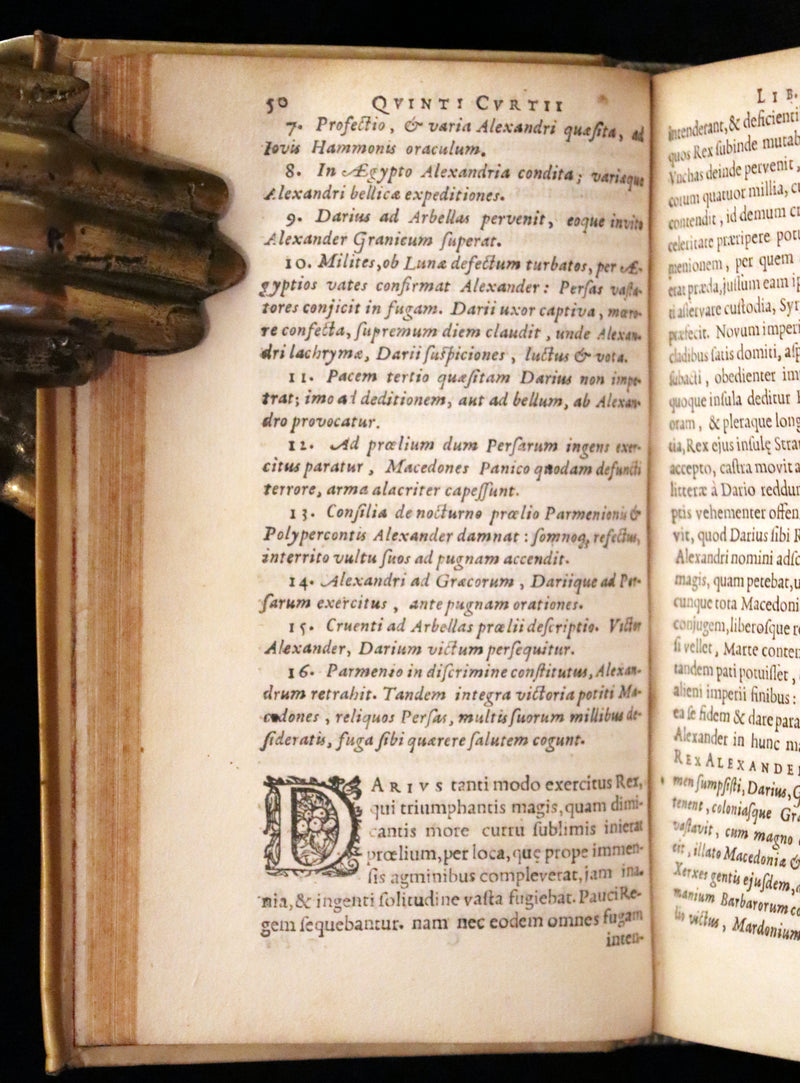 50 QVINTI CVRTII
7. Profectio, & varia Alexandri quæsita, ad
Iovis Hammonis oraculum.
8. In Ægypto Alexandria condita; variæque
Alexandri bellicæ expeditiones.
9. Darius ad Arbellas pervenit, eoque invito
Alexander Granicum superat.
10. Milites, ob Lunæ defectum turbatos, per Æ-
gyptios vates confirmat Alexander: Persas vasta-
tores conjicit in fugam. Darii uxor captiva, mœro-
re confecta, supremum diem claudit, unde Alexan-
dri lachrymæ, Darii suspiciones, luctus & vota.
11. Pacem tertio quæsitam Darius non impe-
trat; imo ad deditionem, aut ad bellum, ab Alexan-
dro provocatur.
12. Ad prœlium dum Persarum ingens exer-
citus paratur, Macedones Panico quodam defuncti
terrore, arma alacriter capessunt.
13. Consilia de nocturno prœlio Parmenionis &
Polypercontis Alexander damnat: somnoq, refectus,
interrito vultu suos ad pugnam accendit.
14. Alexandri ad Græcorum, Dariique ad Per-
sarum exercitus, ante pugnam orationes.
15. Cruenti ad Arbellas prælii descriptio. Victor
Alexander, Darium victum persequitur.
16. Parmenio in discrimine constitutus, Alexan-
drum retrahit. Tandem integra victoria potiti Ma-
cedones, reliquos Persas, multis suorum millibus de-
sideratis, fuga sibi quærere salutem cogunt.
DARIVS tanti modo exercitus Rex,
qui triumphantis magis, quam dimi-
cantis more curru sublimis inierat
prœlium, per loca, quę prope immen-
sis agminibus compleverat, jam ina-
nia, & ingenti solitudine vasta fugiebat. Pauci Re-
gem sequebantur. nam nec eodem omnes fugam
inten-
LIB.
intenderant, & deficienti
quos Rex subinde mutab
Vnchas deinde pervenit,
corum quatuor millia, cu
contendit, id demum cr
celeritate præripere potu
menionem, per quem
erat præda, justum eam ip
ti asservare custodia, Syr
præfecit. Novum imperi
cladibus satis domiti, asp
subacti, obedienter im
quoque insula deditur
oram, & pleraque long
tia, Rex ejus insulę Strat
accepto, castra movit a
litteræ à Dario reddun
ptis vehementer offen
vit, quod Darius sibi R
Alexandri nomini adsc
magis, quam petebat, u
cunque tota Macedoni
conjugem, liberosque re
si vellet, Marte conten
tandem pati potuisset,
alieni imperii finibus:
ea se fidem & dare para
Alexander in hunc m
REX ALEXANDER
men sumpsisti, Darius, G
tenent, coloniasque Gra
vastavit, cum magno
eit, illato Macedoniæ &
Xerxes gentis ejusdem,
manium Barbarorum co
lio victus, Mardonium